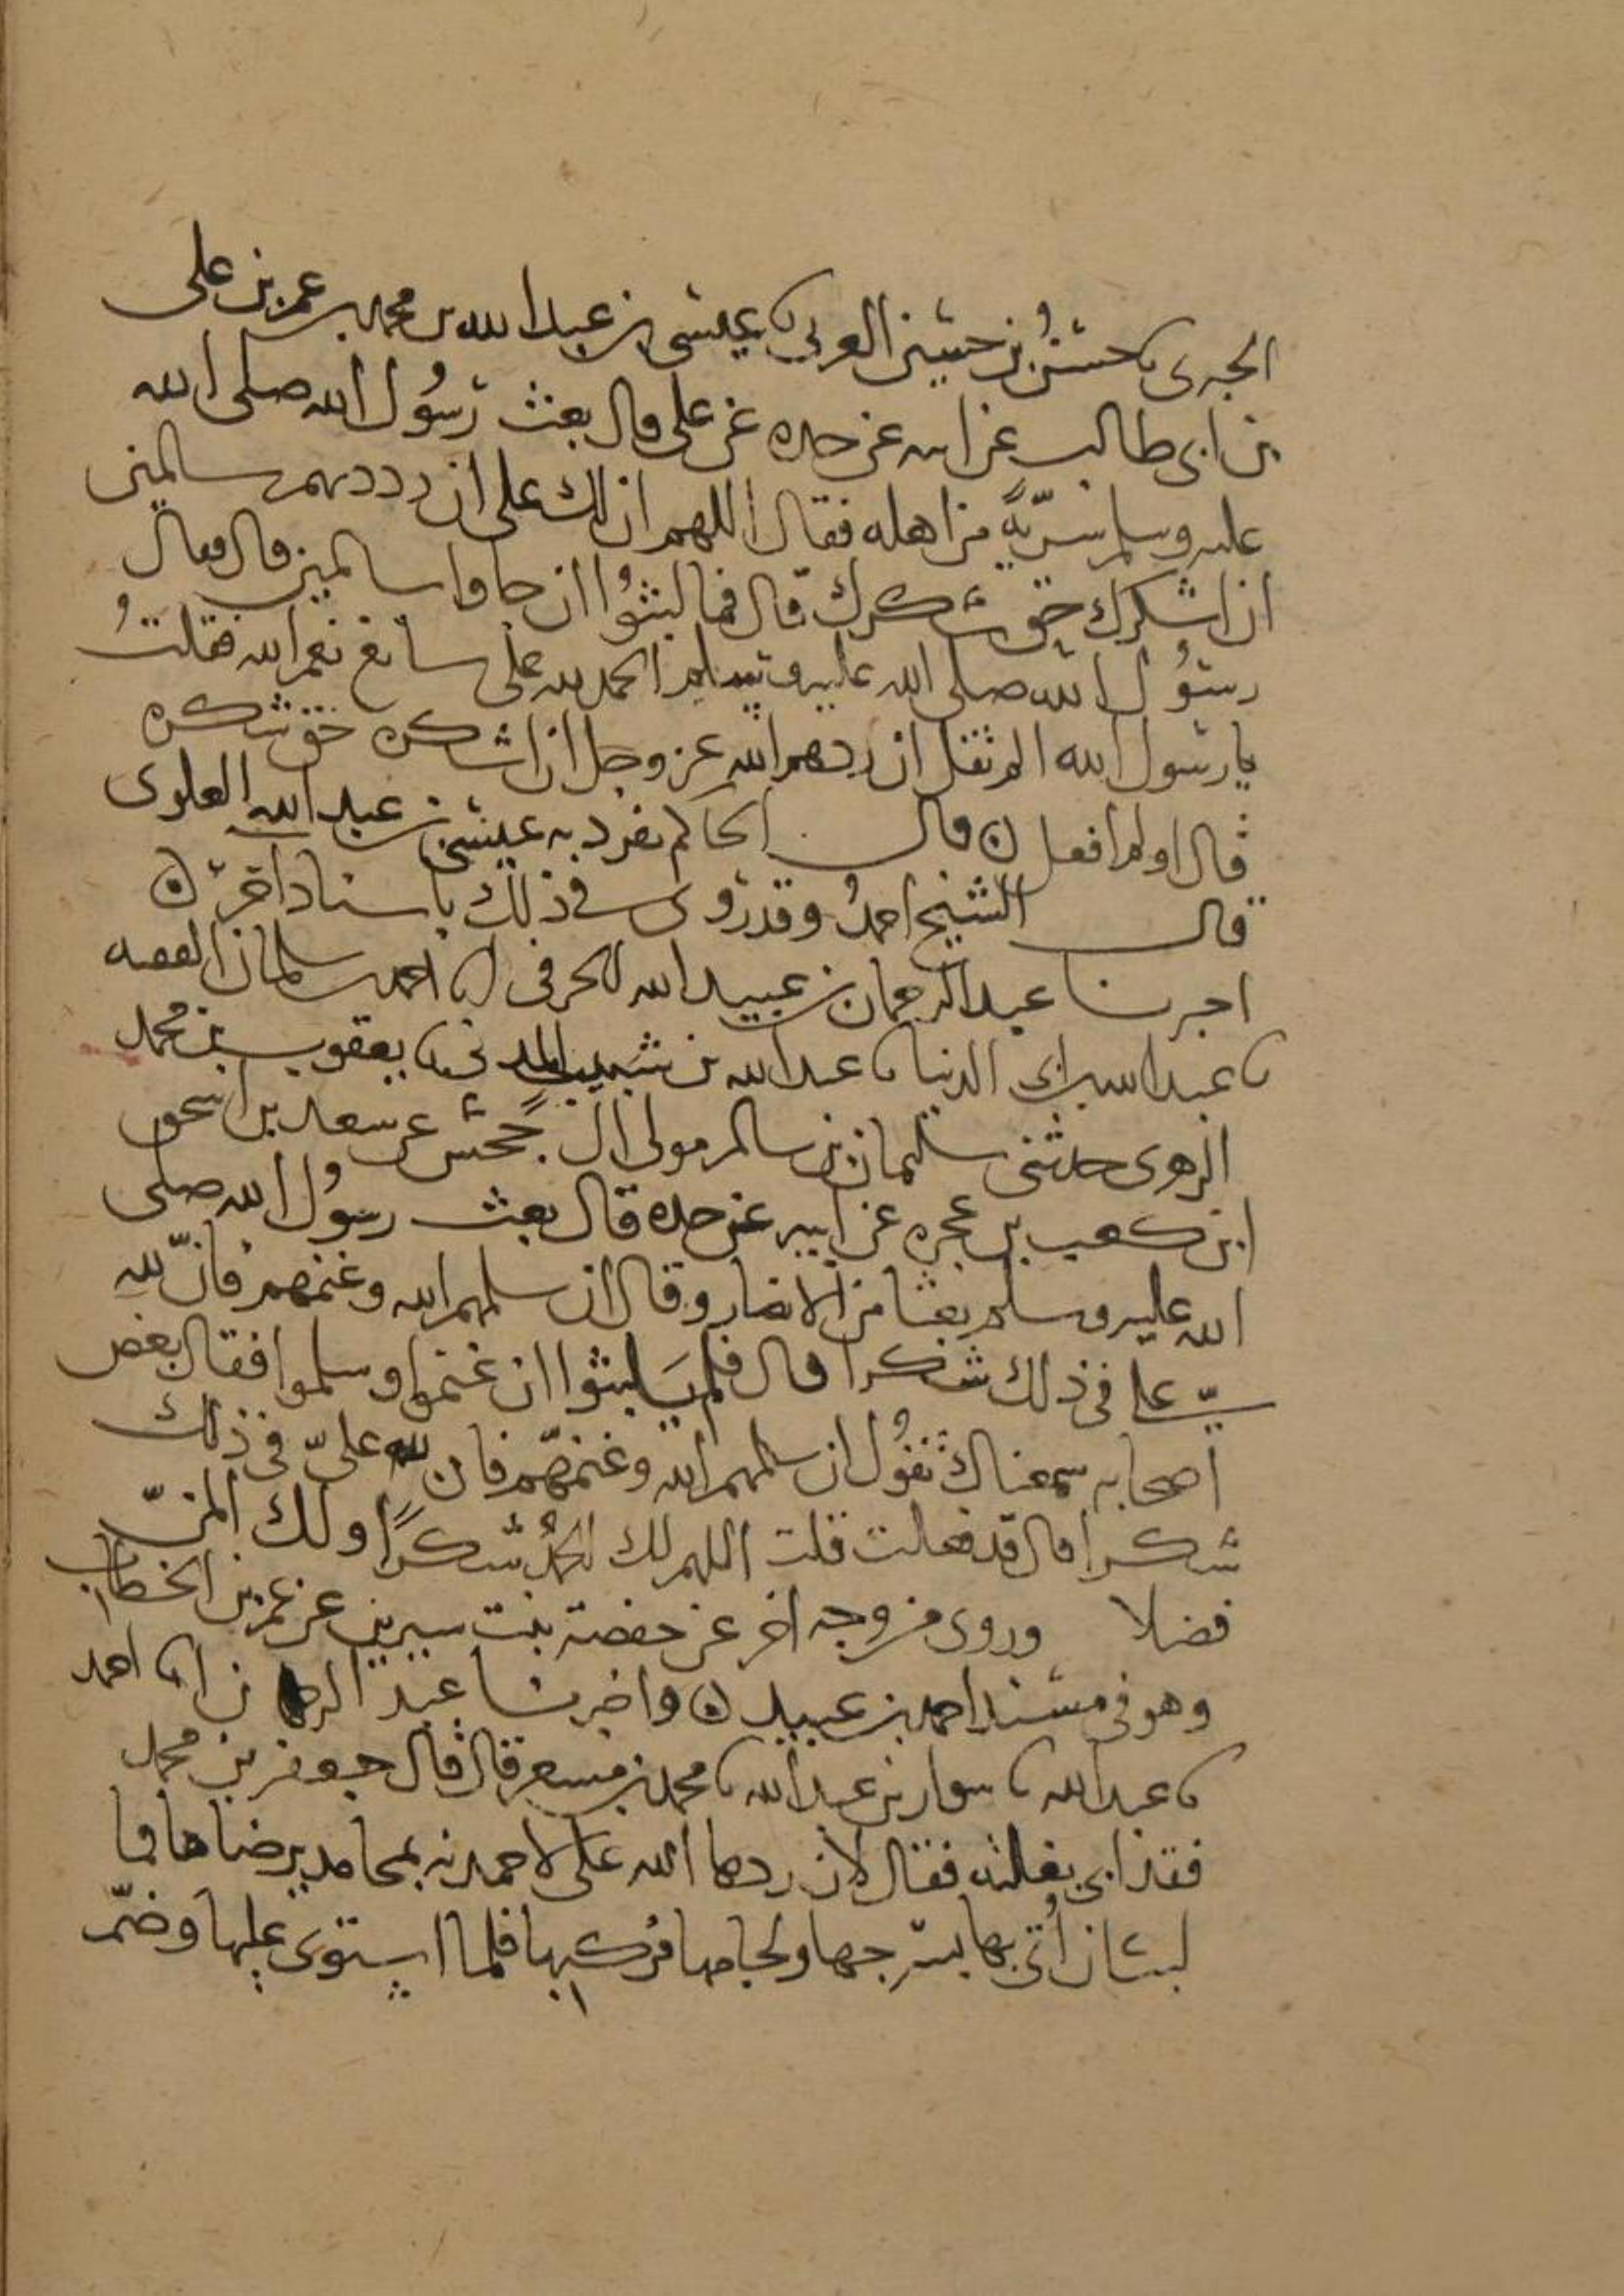 الحبرى ثنا حسن بن حسين العرنى ثنا عيسى بن عبد الله بن محمد بن عمر بن على
بن ابى طالب عن ابيه عن جده عن على قال بعث رسول الله صلى الله
عليه وسلم سريّةً من اهله فقال اللهم ان لك على ان رددتهم سالمين
ان اشكرك حق شكرك قال فما لبثُوا ان جاوا سالمين قال فقال
رسُول الله صلى الله عليه وسلم الحمد لله على سابغ نعم الله فقلتُ
يا رسول الله الم تقل ان ردهم الله عز وجل ان اشكره حق شكره
قال اولم افعل ن قال الحاكم تفرد به عيسى بن عبد الله العلوى
قال الشيخ احمدُ وقد روى فى ذلك باسناد اخر ن
اخبرنا عبد الرحمان بن عبيد الله الحرفى انا احمد بن سلمان الفقيه
ثنا عبد الله بن ابى الدنيا ثنا عبد الله بن شبيب المدنى ثنا يعقوب بن محمد
الزهرى حدثنى سليمان بن سالم مولى ال جحش عن سعد بن اسحق
ابن كعب بن عجره عن ابيه عن جده قال بعث رسُول الله صلى
الله عليه وسلم بعثا من الانصار وقال ان سلمهم الله وغنمهم فانّ لله
علىّ فى ذلك شكرا قال فلم يلبثوا ان غنموا وسلموا فقال بعض
اصحابه سمعناك تقُول ان سلمهم الله وغنمهم فان لله علىّ فى ذلك
شكرا قال قد فعلت قلت اللهم لك الحمدُ شكرًا ولك المنّ
فضلا وروى من وجه اخر عن حفصة بنت سيرين عن عمر بن الخطاب
وهو فى مسند احمد بن عبيد ن واخبرنا عبد الرحمان انا احمد
ثنا عبد الله ثنا سوار بن عبد الله ثنا محمد بن مسعر قال قال جعفر بن محمد
فقد ابى بغلته فقال لان ردها الله على لاحمدنه بمحامد يرضاها فما
لبث ان اُتى بها بسرجها ولجامها فركبها فلما استوى عليها وضمّ